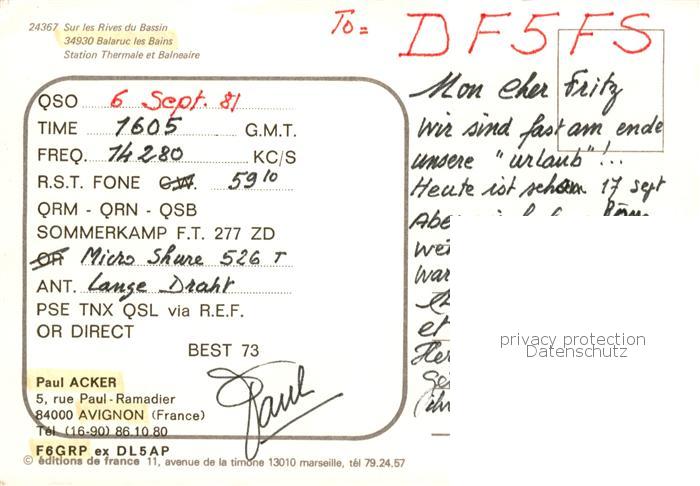 24367 Sur les Rives du Bassin
34930 Balaruc les Bains
Station Thermale et Balneaire
To = DF5FS
QSO 6 Sept. 81
TIME 1605 G.M.T.
FREQ. 14280 KC/S
R.S.T. FONE C.W. 59 10
QRM - QRN - QSB
SOMMERKAMP F.T. 277 ZD
OR Micro Shure 526 T
ANT. Lange Draht
PSE TNX QSL via R.E.F.
OR DIRECT
BEST 73
Paul
Paul ACKER
5, rue Paul-Ramadier
84000 AVIGNON (France)
Tél (16-90) 86.10.80
F6GRP ex DL5AP
© éditions de france 11, avenue de la timone 13010 marseille, tél 79.24.57
Mon cher Fritz
Wir sind fast am ende
unsere "urlaub"!..
Heute ist schon 17 sept
et
privacy protection
Datenschutz